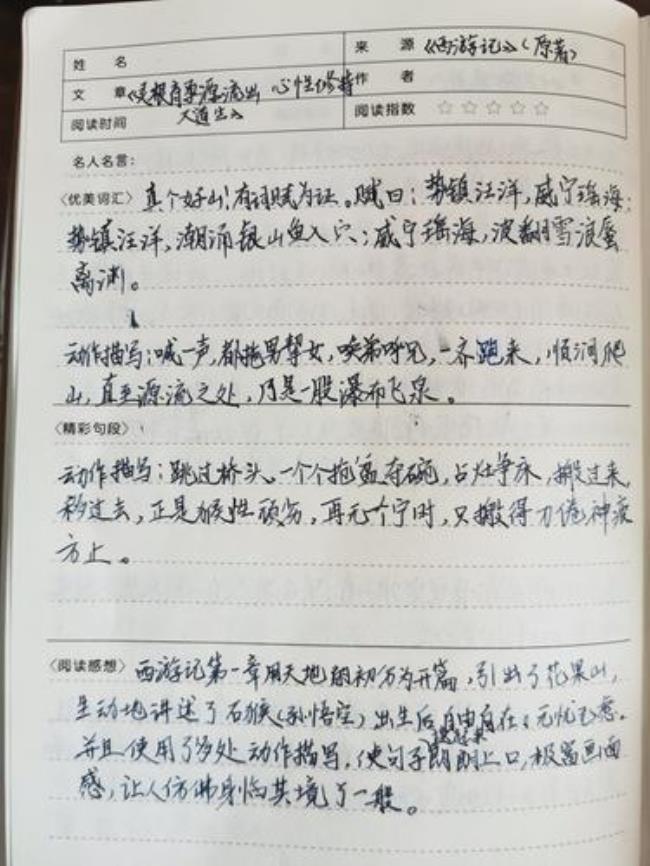 姓 名
来 源 《西游记》（原著）
文 章 《灵根育孕源流出 心性修持
大道生》
作 者
阅读时间
阅读指数 ☆ ☆ ☆ ☆ ☆
名人名言：
〈优美词汇〉 真个好山！有词赋为证。赋曰：势镇汪洋，威宁瑶海；
势镇汪洋，潮涌银山鱼入穴；威宁瑶海，波翻雪浪蜃
离渊。
动作描写：喊一声，都拖男挈女，唤弟呼兄，一齐跑来，顺涧爬
山，直至源流之处，乃是一股瀑布飞泉。
〈精彩句段〉
动作描写：跳过桥头，一个个抢盆夺碗，占灶争床，搬过来，
移过去，正是猴性顽劣，再无个宁时，只搬得力倦神疲
方止。
〈阅读感想〉 西游记第一章用天地的初分为开篇，引出了花果山，
生动地讲述了石猴（孙悟空）出生后自由自在、无忧无虑。
并且使用了多处动作描写，使句子读起来朗朗上口，极富画面
感，让人仿佛身临其境了一般。